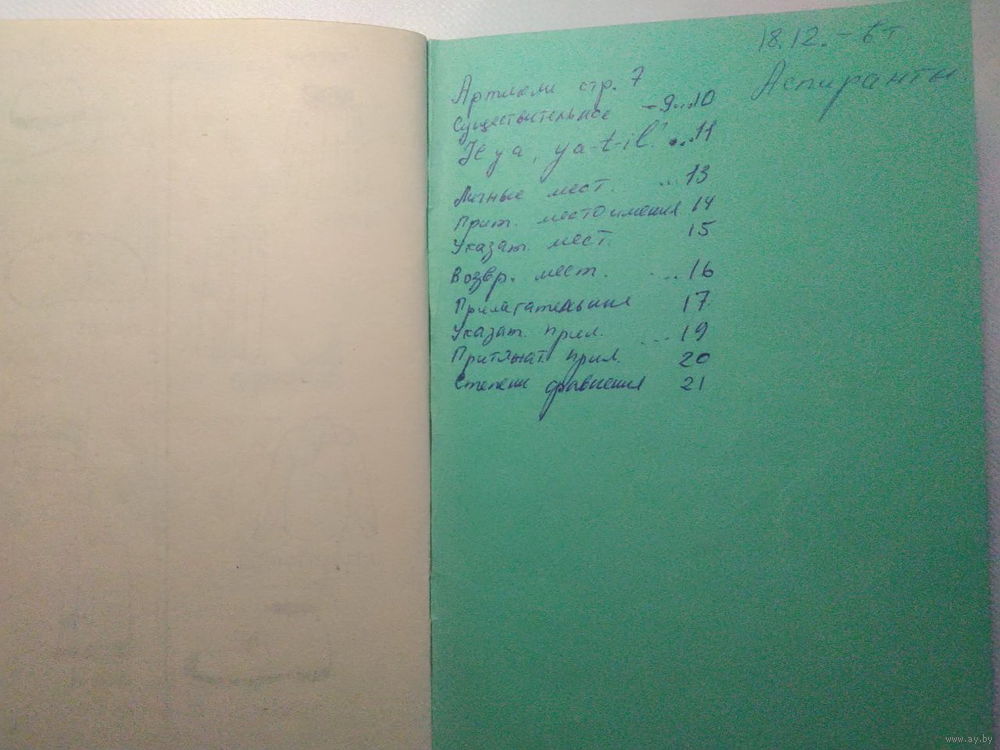 18.12. – 6т
Аспиранты
Артикли стр. 7
Существительное – 9...10
Il y a, ya-t-il? ...11
Личные мест. ...13
Прит. местоимения 14
Указат. мест. 15
Возвр. мест. ...16
Прилагательные 17
Указат. прил. ...19
Притяжат. прил. 20
Степени сравнения 21
www.ay.by